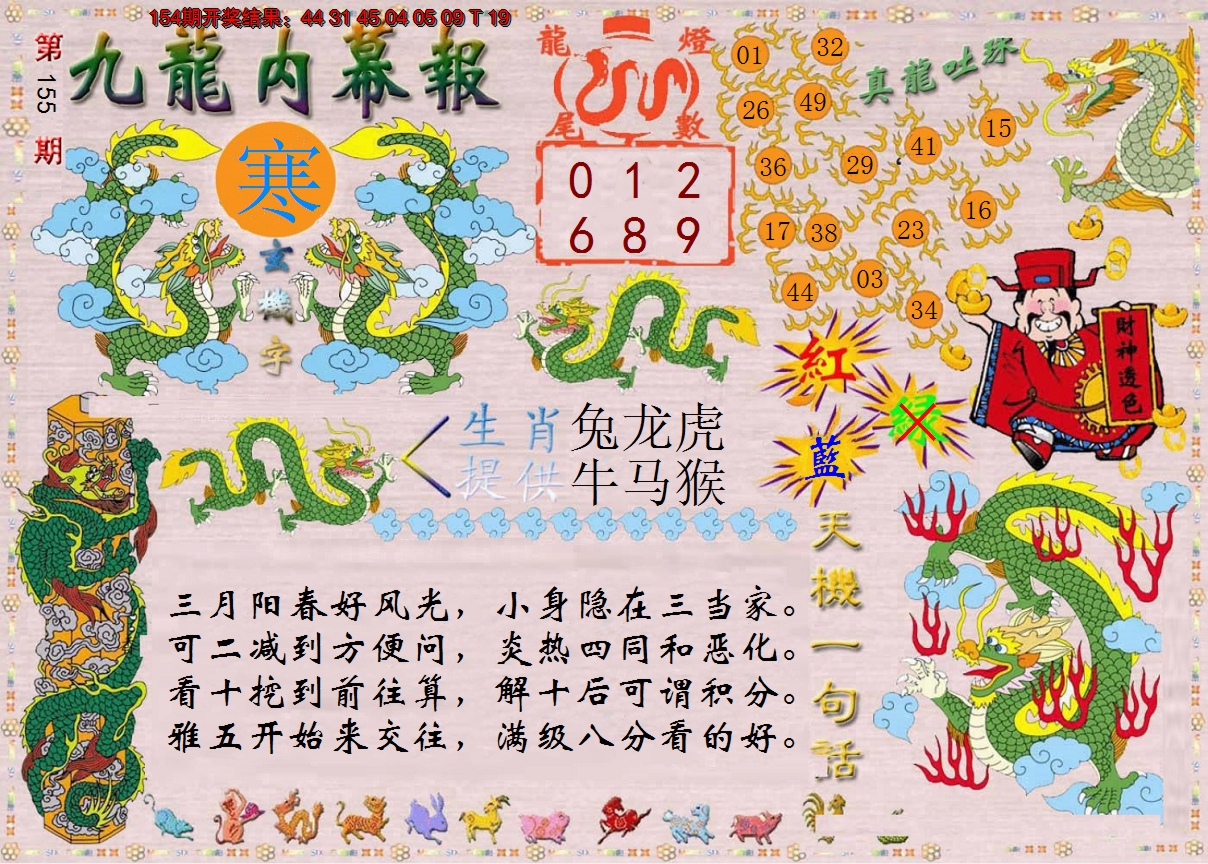 154期开奖结果：44 31 45.04 05 09 T 19
第155期
九龍内幕報
寒
玄機字
龍燈
尾數
0 1 2
6 8 9
真龍吐珠
01 32
26 49
36 29 41 15
17 38 23 16
44 03 34
財神透色
紅
绿
藍
生肖 兔龙虎
提供 牛马猴
三月阳春好风光，小身隐在三当家。
可二减到方便问，炎热四同和恶化。
看十挖到前往算，解十后可谓积分。
雅五开始来交往，满级八分看的好。
天機一句话